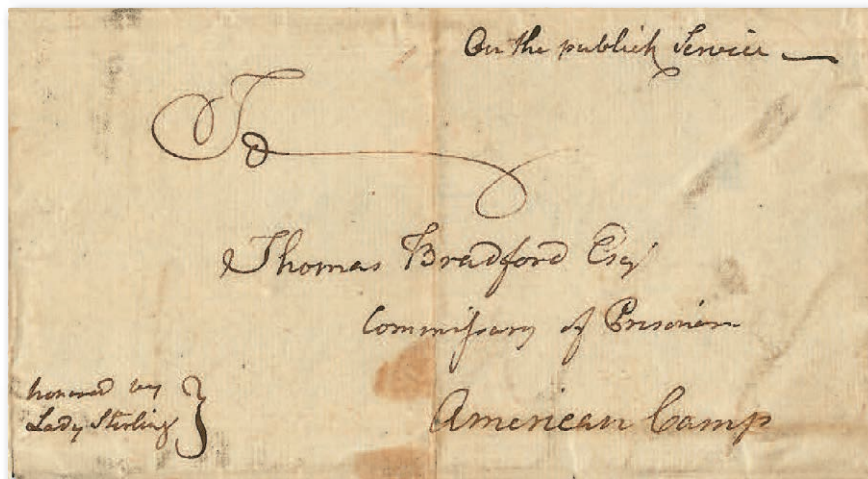 On the publick Service
To
Thomas Bradford Esqr
Commissary of Prisoners
American Camp
honored by
Lady Stirling